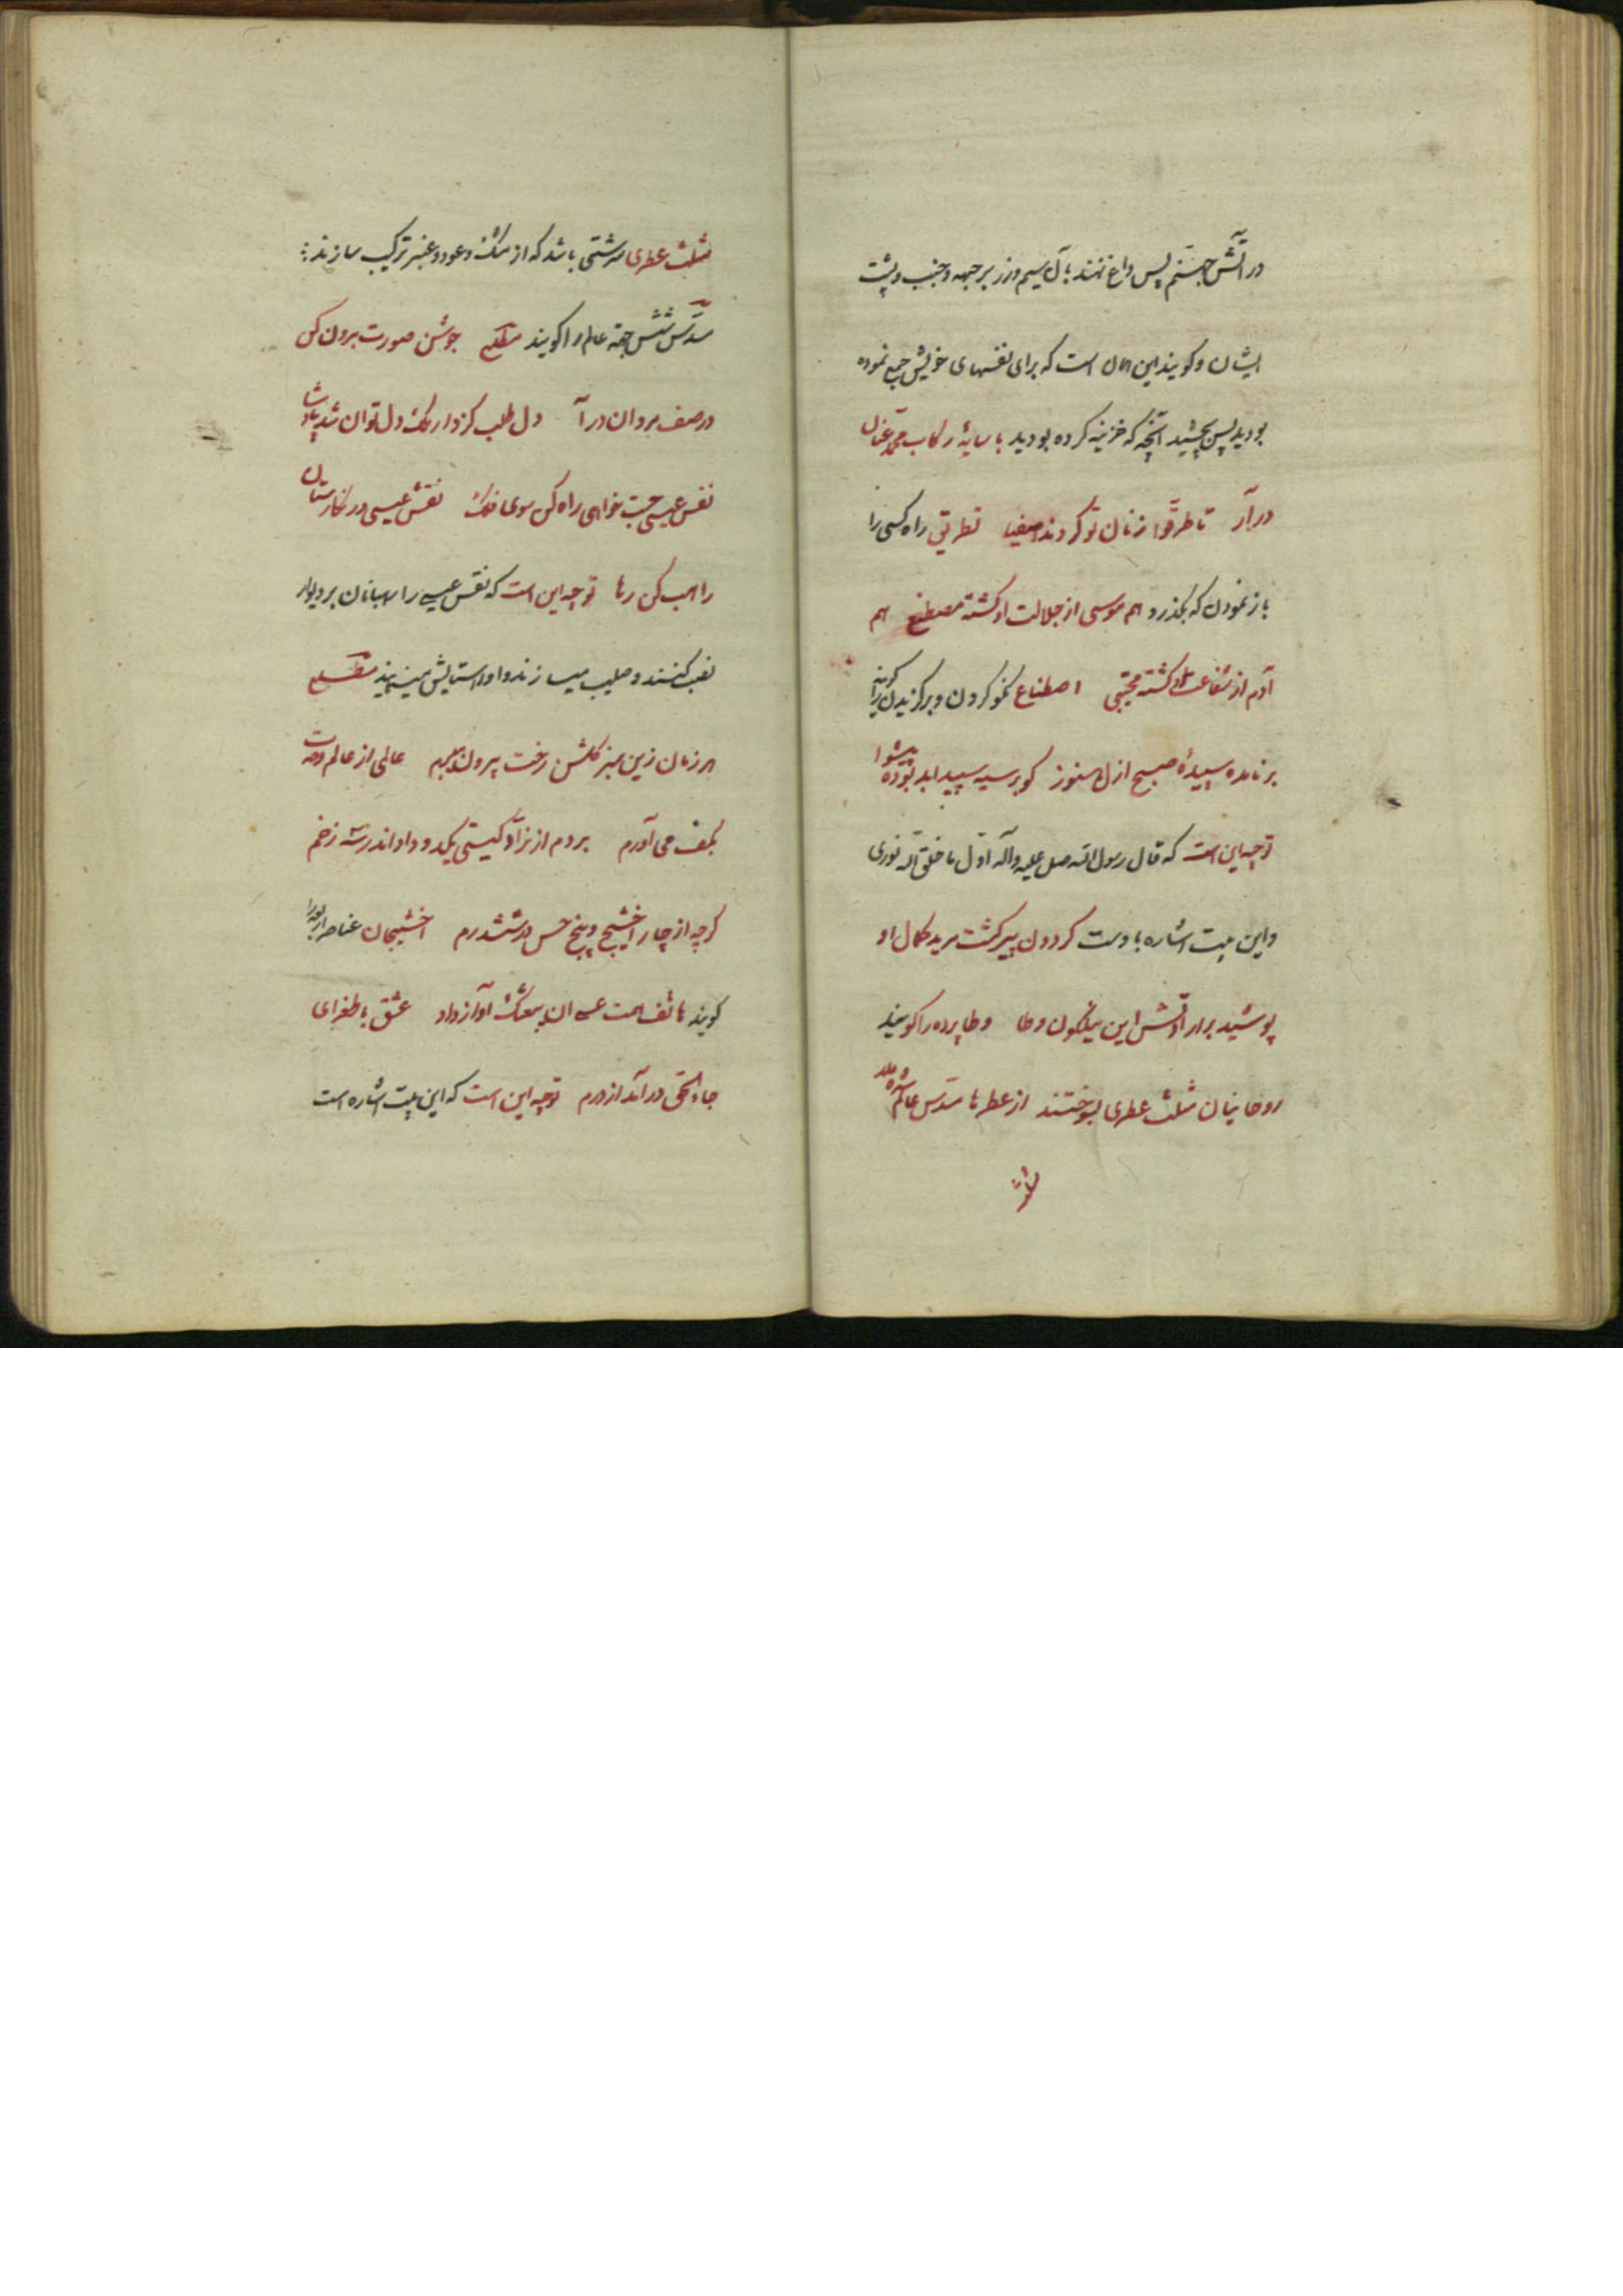 در آتش جهنم پس داغ نهند بآن سیم و زر بر جبهه و جنب و پشت
ایشان و کویند این آن است که برای نفسهای خویش جمع نموده
بودید پس بچشید آنچه که خزینه کرده بودید با سایهٔ رکاب محمد عنان
در آر تا طرقوا زنان تو کردند اصفیا تطریق راه کسی را
باز نمودن که بکذرد هم موسی از جلالت او کشته مصطنع هم
آدم از شفاعت او کشته مجتبی اصطناع نکو کردن و برکزیدن را کویند
بر نامده سپیدهٔ صبح ازل هنوز کو بر سیه سپید ابد بوده پیشوا
توجیه این است که قال رسول الله صلی علیه وآله اوّل ما خلق الله نوری
و این بیت اشاره باوست کردون پیر کشت مرید کمال او
پوشید برارادتش این نیلکون وطا وطا پرده را کویند
روحانیان مثلث عطری بسوختند از عطرها مسدّس عالم شده ملا
مثلث عطری سرشتی باشد که از مشک و عود و عنبر ترکیب سازند
مسدّس شش جهة عالم را کویند مطلع جوشن صورت برون کن
در صف مردان درآ دل طلب کز دار ملک دل توان شد پادشا
نفس عیسی جست خواهی راه کن سوی فلک نقش عیسی در نکارستان
راهب کن رها توجیه این است که نقس عیسی را رهبانان بر دیوار
نصب کنند و صلیب میسازند و او را ستایش مینمایند مطلع
هر زمان زین سبز کلشن رخت بیرون میبرم عالمی از عالم وحدت
بکف می آورم بردم از نرّاد کیتی یکدو داو اندر سه زخم
کرچه از چار اخشیج و پنج حس در ششدرم اخشیجان عناصر اربعه را
کویند هاتف همت عسی ان یبعثک آواز داد عشق با طغرای
جاء الحق درآمد از درم توجیه این است که این بیت اشاره است